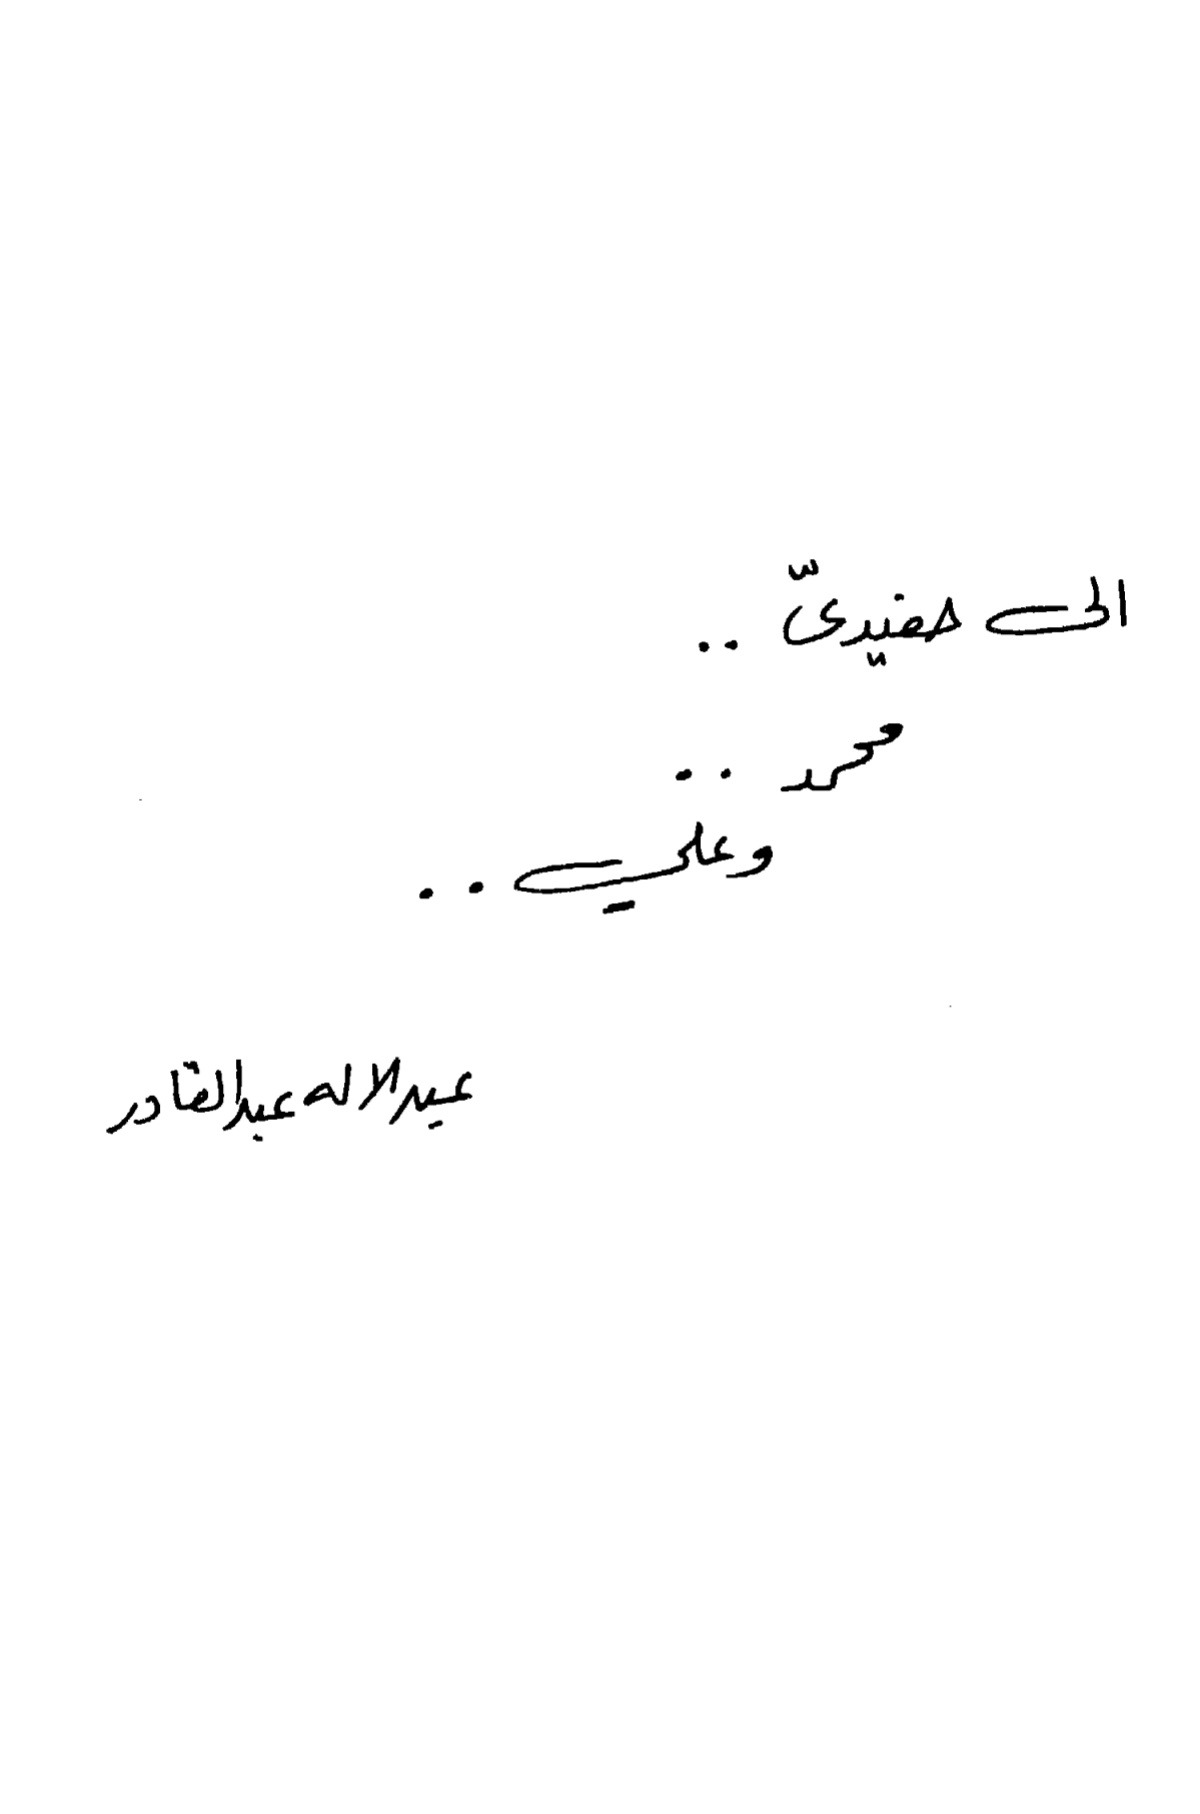 الى حفيدىّ ..
محمد ..
وعلي ..
عبدالاله عبدالقادر